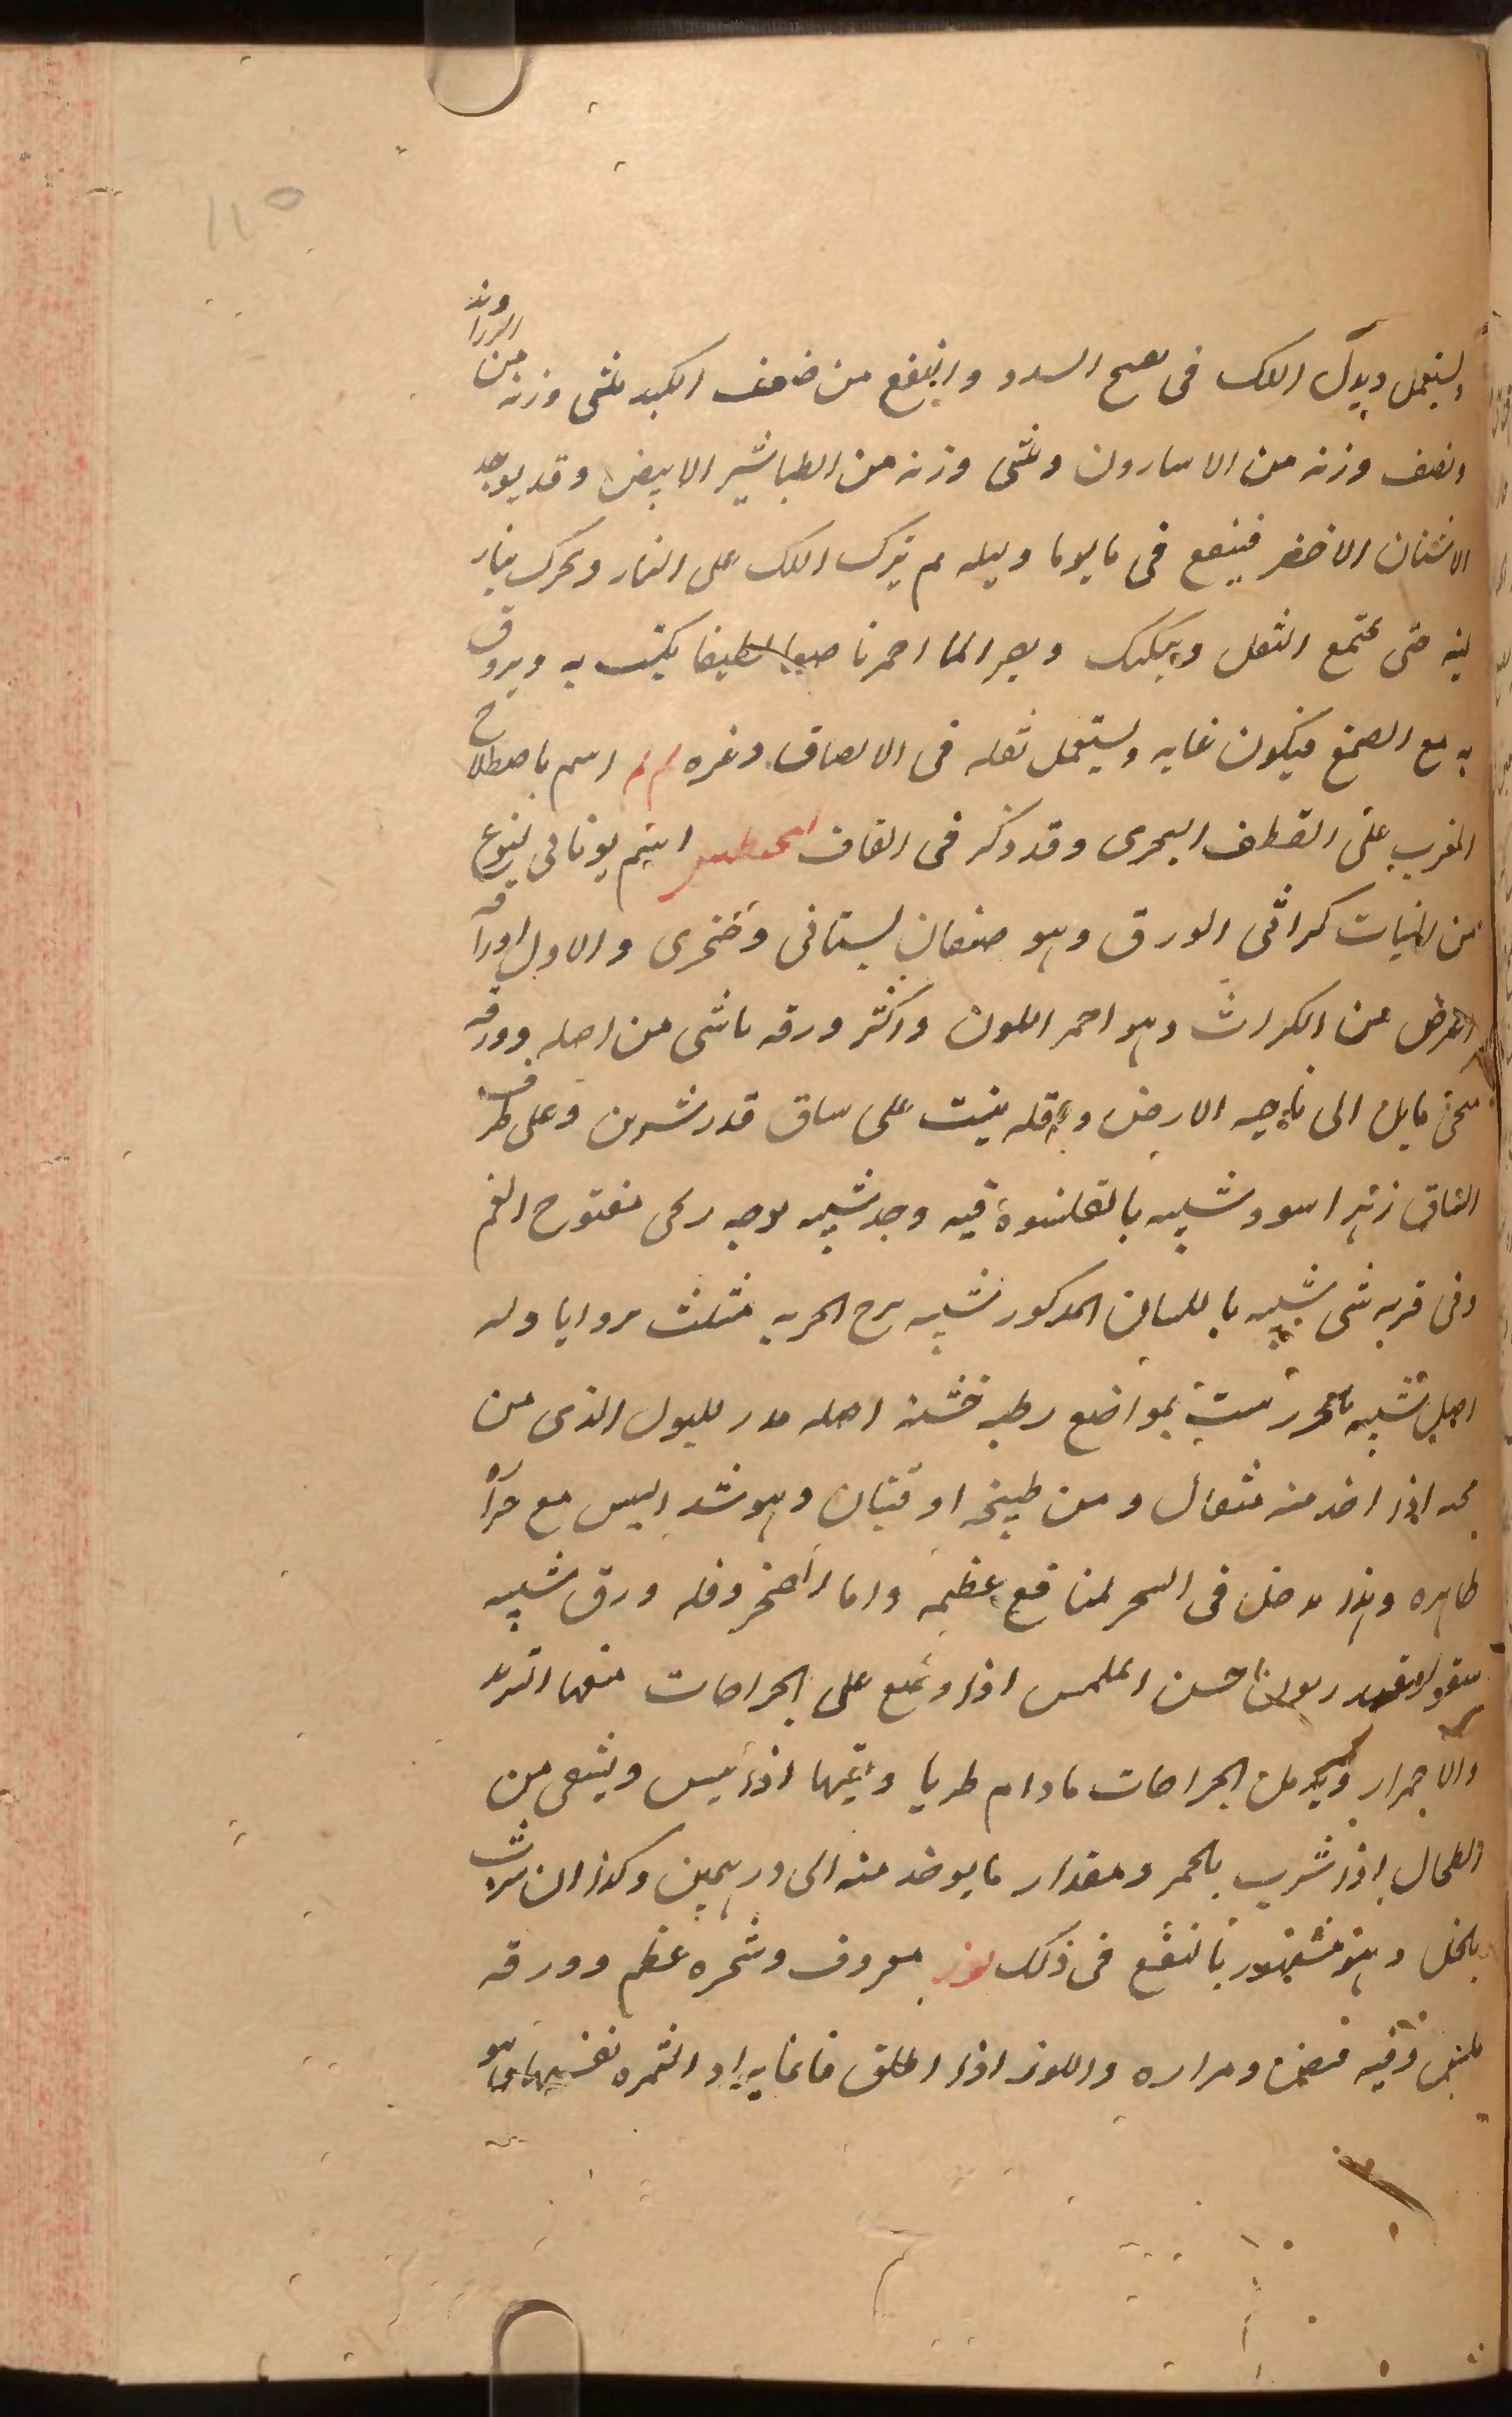 ١١٥
ويستعمل وبدل اللك فى تفتح السدد وان ينفع من ضعف الكبد ثلثى وزنه من الزراوند
ونصف وزنه من الاسارون وثلثى وزنه من الطباشير الابيض وقد يوجد
الاشنان الاخضر فينقع فى ما يوما وليله ثم يترك اللك على النار ويحرك بنار
لينه حتى يجتمع الثفل ويصير الما احمرنا صبغا لطيفا يكتب به ويروق
به مع الصمغ فيكون غايه ويستعمل ثفله فى الالصاق وغيره اسم باصطلاح
المغرب على القطف البحرى وقد ذكر فى القاف اسم يونانى لنوع
من النبات كراثى الورق وهو صنفان بستانى وصخرى والاول اوراقه
اعرض من الكراث وهو احمر اللون واكثر ورقه ناشى من اصله وورقه
منحن مايل الى ناحيه الارض واقله ينبت على ساق قدر شبرين وعلى طرف
الساق زهر اسود شبيه بالقلنسوة فيه وجد شبيه بوجه رحى مفتوح الفم
وفى قربه شى شبيه باللسان المذكور شبيه برمح الحربه مثلث بزوايا وله
اصل شبيه بالجزر ينبت بمواضع رطبه خشنه اصله مدر للبول الذى من
اذا اخذ منه مثقال ومن طبيخه اوقيتان وهو شد اليبس مع حراره
ظاهره وهذا يدخل فى السحر لمنافع عظيمه واما الصخرى فله ورق شبيه
خشن الملمس اذا وضع على الجراحات منعها التزيد
والاحمرار ويدمل الجراحات مادام طريا وينقيها اذا يبس ويشفى من
الطحال اذا شرب بالخمر ومقدار ما يوخذ منه الى درهمين وكذا ان شرب
بالخل وهو مشهور بالنفع فى ذلك لوز معروف وشجره عظيم وورقه
وفيه قبض ومراره واللوز اذا اطلق فانما يراد الثمره نفسها